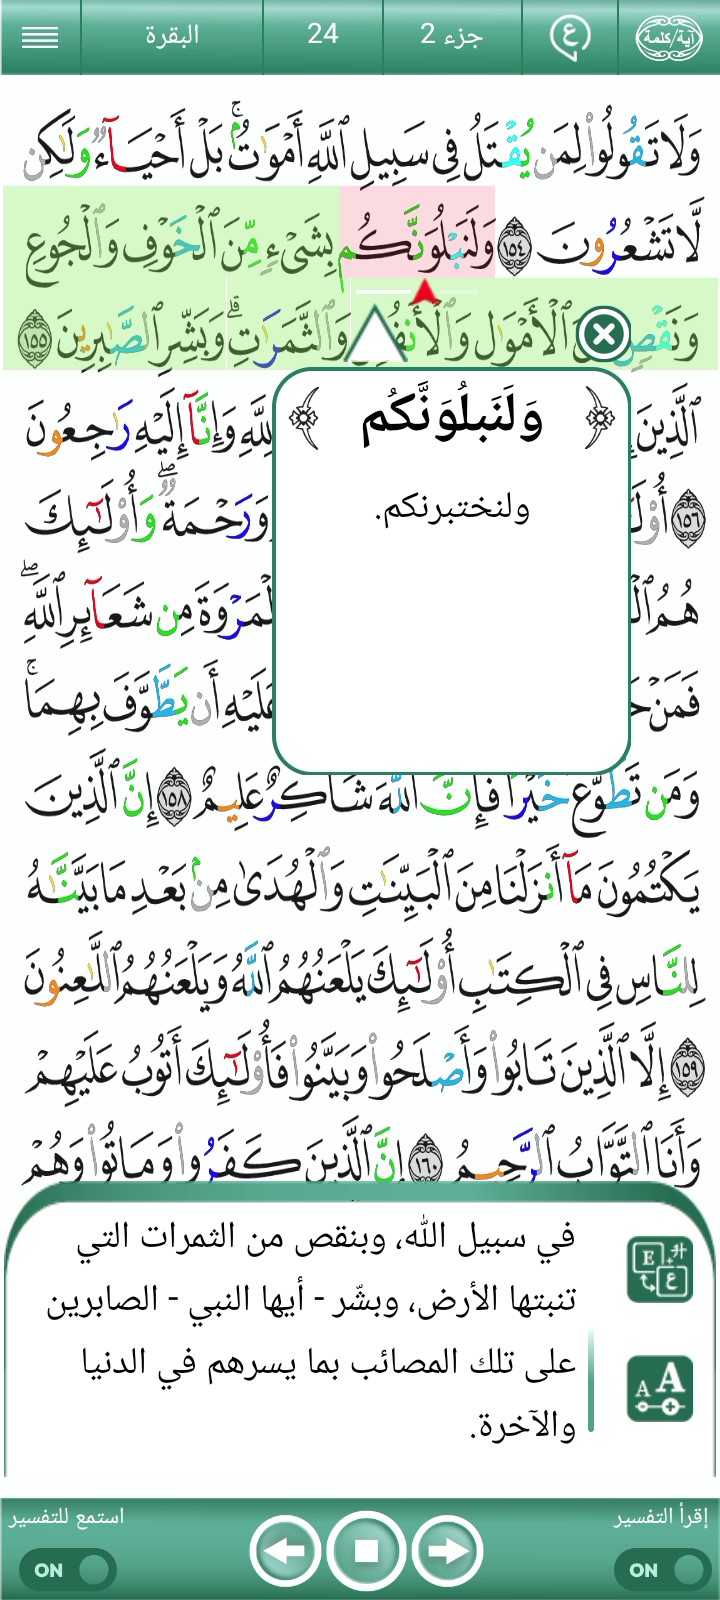 آية/كلمة
ع
جزء 2
24
البقرة
وَلَا تَقُولُوا۟ لِمَن يُقْتَلُ فِى سَبِيلِ ٱللَّهِ أَمْوَٰتٌۢ ۚ بَلْ أَحْيَآءٌ وَلَٰكِن
لَّا تَشْعُرُونَ ١٥٤ وَلَنَبْلُوَنَّكُم بِشَىْءٍ مِّنَ ٱلْخَوْفِ وَٱلْجُوعِ
وَنَقْصٍ ٱلْأَمْوَٰلِ وَٱلْأَنفُسِ وَٱلثَّمَرَٰتِ ۗ وَبَشِّرِ ٱلصَّٰبِرِينَ ١٥٥
وَلَنَبلُوَنَّكُم
ولنختبرنكم.
ٱلَّذِينَ وَإِنَّآ إِلَيْهِ رَٰجِعُونَ
١٥٦ وَرَحْمَةٌ ۖ وَأُو۟لَٰٓئِكَ
هُمُ وَٱلْمَرْوَةَ مِن شَعَآئِرِ ٱللَّهِ ۖ
فَمَنْ عَلَيْهِ أَن يَطَّوَّفَ بِهِمَا ۚ
وَمَن تَطَوَّعَ خَيْرًا فَإِنَّ ٱللَّهَ شَاكِرٌ عَلِيمٌ ١٥٨ إِنَّ ٱلَّذِينَ
يَكْتُمُونَ مَآ أَنزَلْنَا مِنَ ٱلْبَيِّنَٰتِ وَٱلْهُدَىٰ مِنۢ بَعْدِ مَا بَيَّنَّٰهُ
لِلنَّاسِ فِى ٱلْكِتَٰبِ أُو۟لَٰٓئِكَ يَلْعَنُهُمُ ٱللَّهُ وَيَلْعَنُهُمُ ٱللَّٰعِنُونَ
١٥٩ إِلَّا ٱلَّذِينَ تَابُوا۟ وَأَصْلَحُوا۟ وَبَيَّنُوا۟ فَأُو۟لَٰٓئِكَ أَتُوبُ عَلَيْهِمْ
وَأَنَا ٱلتَّوَّابُ ٱلرَّحِيمُ ١٦٠ إِنَّ ٱلَّذِينَ كَفَرُوا۟ وَمَاتُوا۟ وَهُمْ
في سبيل الله، وبنقص من الثمرات التي
تنبتها الأرض، وبشّر - أيها النبي - الصابرين
على تلك المصائب بما يسرهم في الدنيا
والآخرة.
إقرأ التفسير
استمع للتفسير
ON
ON